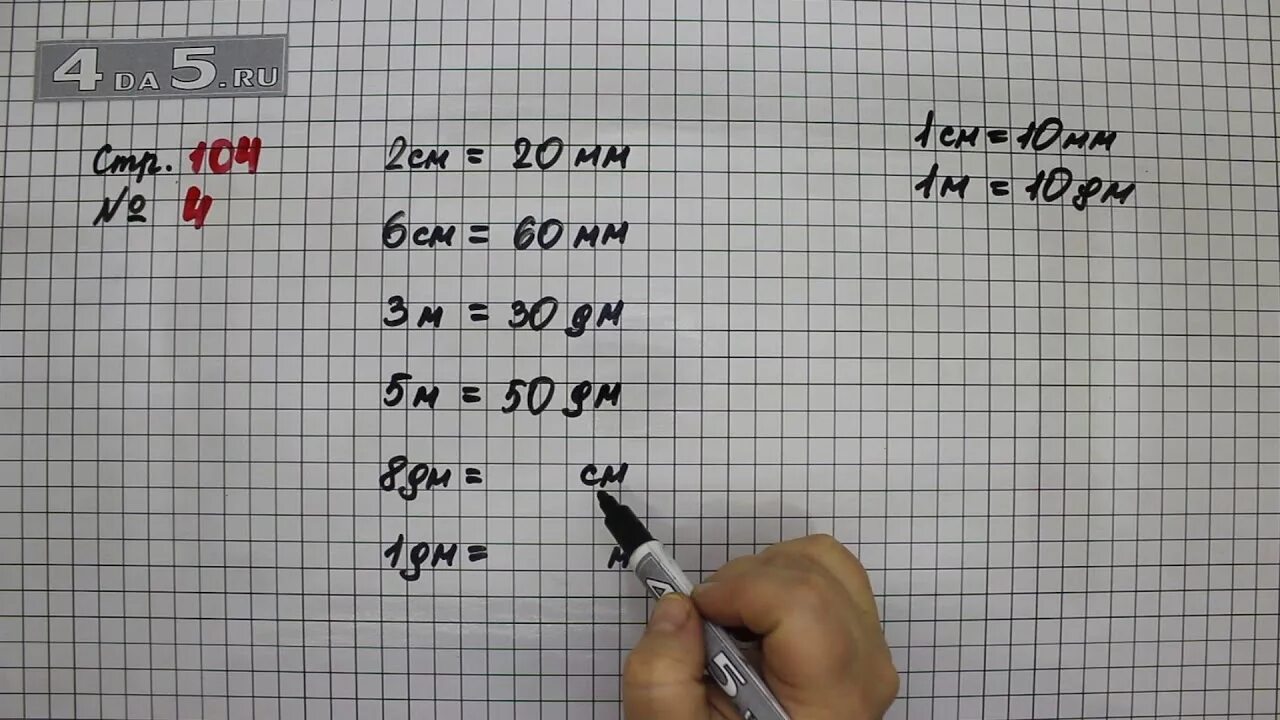 4DA5.RU
Стр. 104
№ 4
2см = 20 мм
6см = 60 мм
3 м = 30 дм
5м = 50 дм
8дм = см
1дм = м
1см = 10мм
1м = 10дм
5